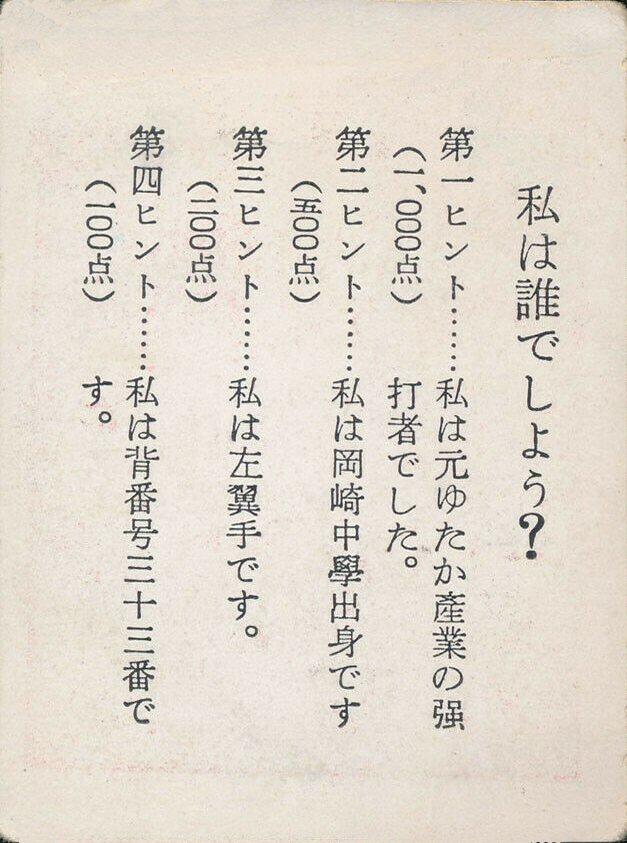 私は誰でしよう?
第一ヒント……私は元ゆたか産業の强
(一、000点)打者でした。
第二ヒント……私は岡崎中學出身です
(五00点)
第三ヒント……私は左翼手です。
(二00点)
第四ヒント……私は背番号三十三番で
(一00点)す。